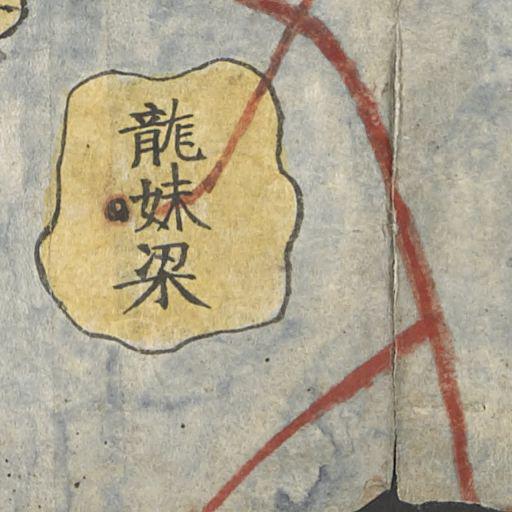 龍妹梁